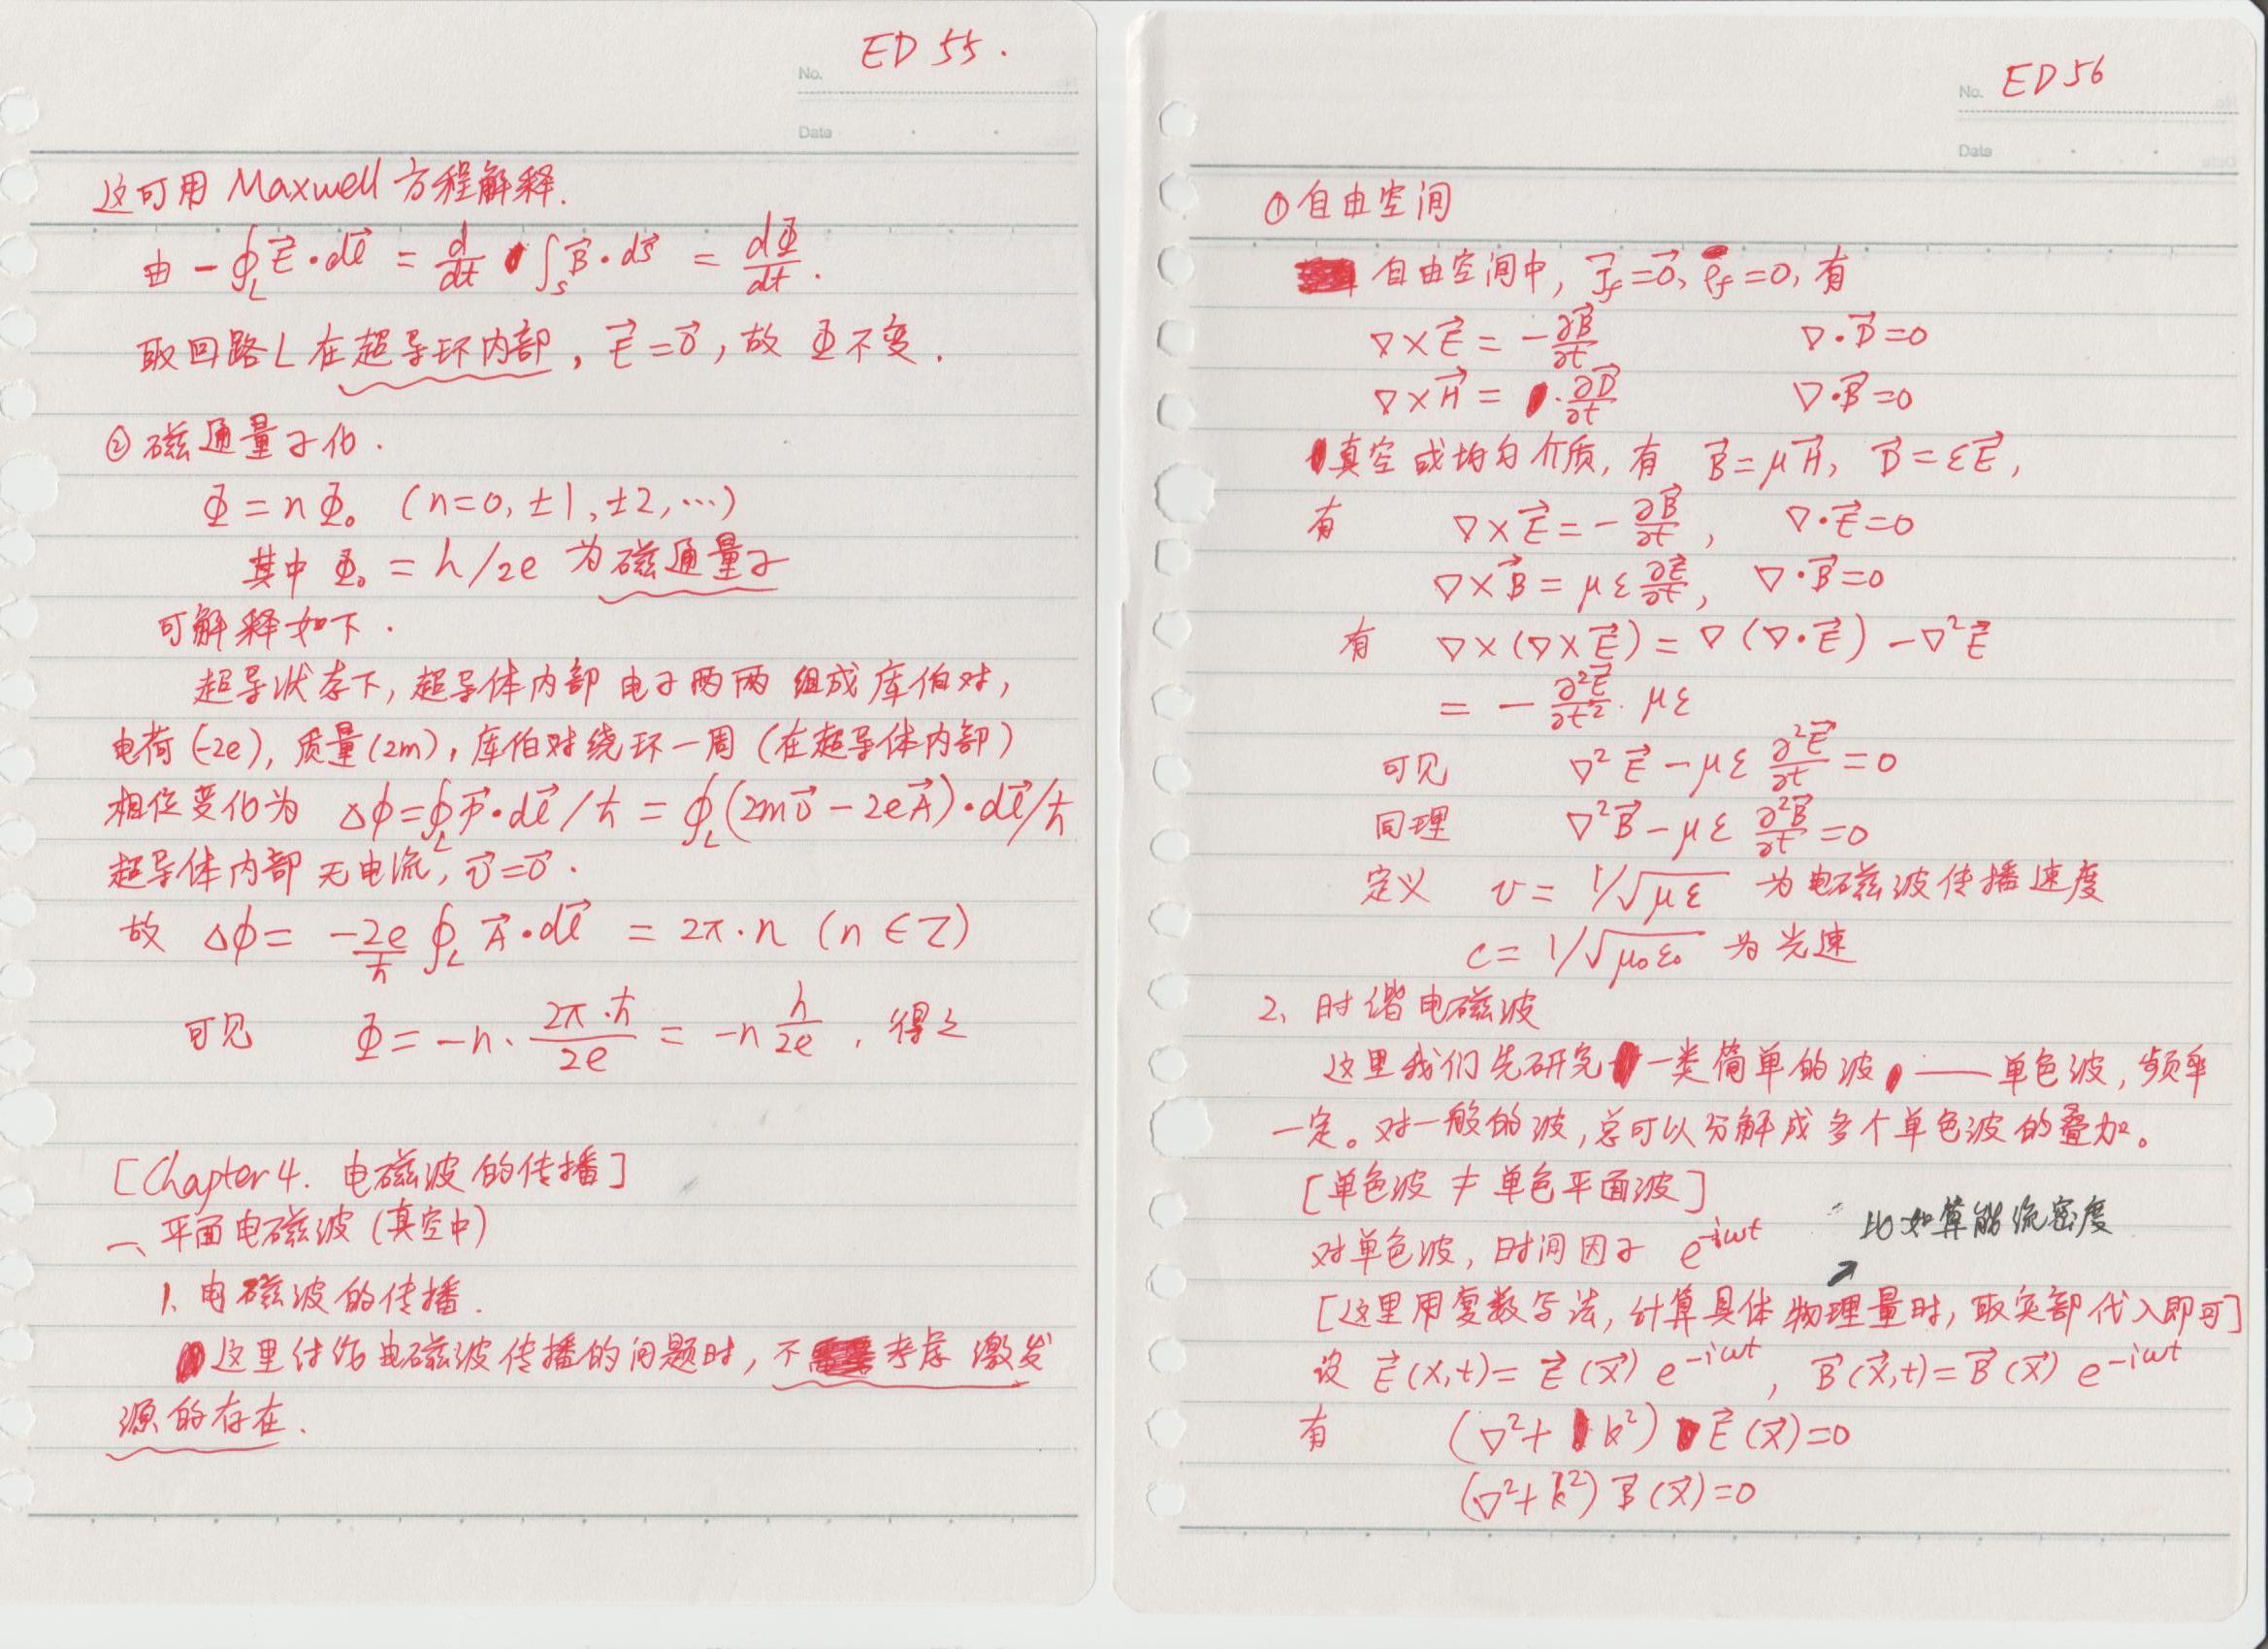 ED 55.
No.
Date
这可用 Maxwell 方程解释.
由 -∮_L E⃗·dl⃗ = d/dt ∫_S B⃗·dS⃗ = dΦ/dt.
取回路L在超导环内部, E⃗=0⃗, 故 Φ不变.
② 磁通量子化.
Φ = nΦ₀ (n=0, ±1, ±2, ···)
其中 Φ₀ = h/2e 为磁通量子
可解释如下.
超导状态下, 超导体内部电子两两组成库伯对,
电荷(-2e), 质量(2m), 库伯对绕环一周(在超导体内部)
相位变化为 Δϕ=∮_L P⃗·dl⃗/ħ = ∮_L (2mv⃗ - 2eA⃗)·dl⃗/ħ
超导体内部无电流, v⃗=0⃗.
故 Δϕ = -2e/ħ ∮_L A⃗·dl⃗ = 2π·n (n∈Z)
可见 Φ = -n·2π·ħ/2e = -n h/2e, 得之
[Chapter 4. 电磁波的传播]
一、平面电磁波(真空中)
1. 电磁波的传播.
这里讨论电磁波传播的问题时, 不考虑激发
源的存在.
ED 56
No.
Date
① 自由空间
自由空间中, J⃗f=0⃗, ρf=0, 有
∇×E⃗ = -∂B⃗/∂t ∇·D⃗=0
∇×H⃗ = ·∂D⃗/∂t ∇·B⃗=0
真空或均匀介质, 有 B⃗=μH⃗, D⃗=εE⃗,
有 ∇×E⃗ = -∂B⃗/∂t, ∇·E⃗=0
∇×B⃗ = με ∂E⃗/∂t, ∇·B⃗=0
有 ∇×(∇×E⃗) = ∇(∇·E⃗) - ∇²E⃗
= -∂²E⃗/∂t²·με
可见 ∇²E⃗ - με ∂²E⃗/∂t = 0
同理 ∇²B⃗ - με ∂²B⃗/∂t = 0
定义 v = 1/√με 为电磁波传播速度
c = 1/√μ₀ε₀ 为光速
2. 时谐电磁波
这里我们先研究一类简单的波 —— 单色波, 频率
一定。对一般的波, 总可以分解成多个单色波的叠加。
[单色波 ≠ 单色平面波]
比如算能流密度
对单色波, 时间因子 e^{-iωt}
[这里用复数写法, 计算具体物理量时, 取实部代入即可]
设 E⃗(x,t)=E⃗(x⃗) e^{-iωt}, B⃗(x⃗,t)=B⃗(x⃗) e^{-iωt}
有 (∇²+k²) E⃗(x⃗)=0
(∇²+k²) B⃗(x⃗)=0